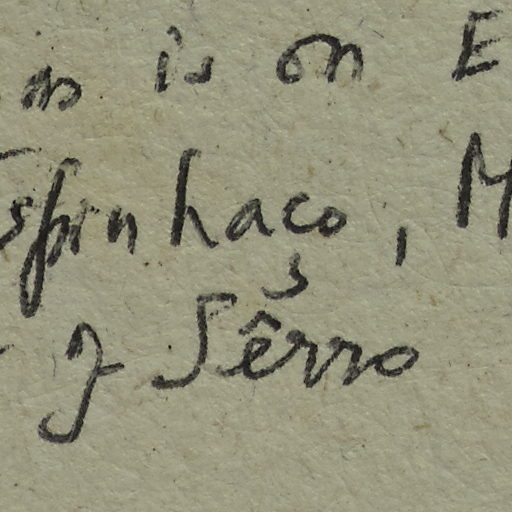 is on E
Espinhaço, M
of Sêrro